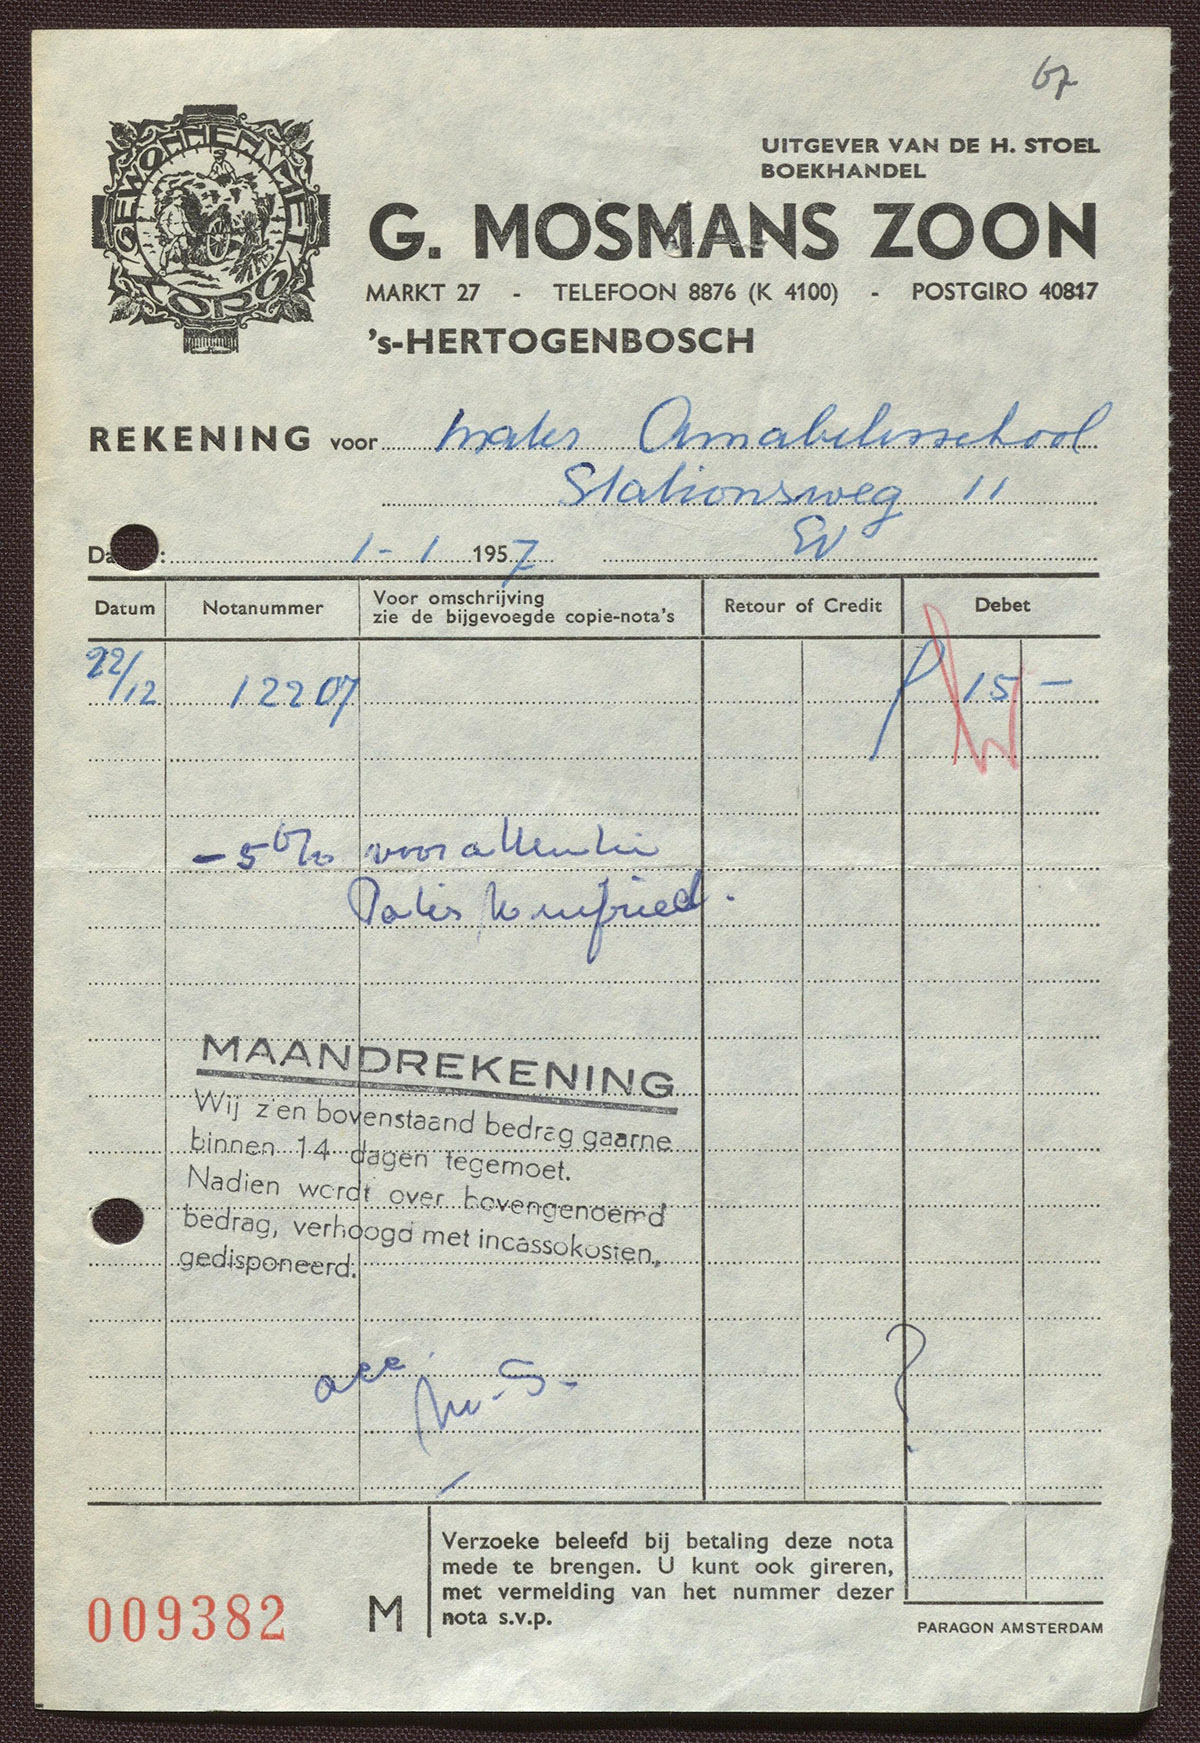 67
GEWONNEN MET ZORG
UITGEVER VAN DE H. STOEL
BOEKHANDEL
G. MOSMANS ZOON
MARKT 27 - TELEFOON 8876 (K 4100) - POSTGIRO 40817
's-HERTOGENBOSCH
REKENING voor Mater Amabelisschool
Stationsweg 11
Da : 1 - 1 1957
Datum Notanummer Voor omschrijving zie de bijgevoegde copie-nota's Retour of Credit Debet
22/12 12207 15 -
- 5% voor attentie
Pater Winfried.
MAANDREKENING
Wij z'en bovenstaand bedrag gaarne
binnen 14 dagen tegemoet.
Nadien wordt over bovengenoemd
bedrag, verhoogd met incassokosten,
gedisponeerd.
acc
?
009382 M
Verzoeke beleefd bij betaling deze nota
mede te brengen. U kunt ook gireren,
met vermelding van het nummer dezer
nota s.v.p.
PARAGON AMSTERDAM